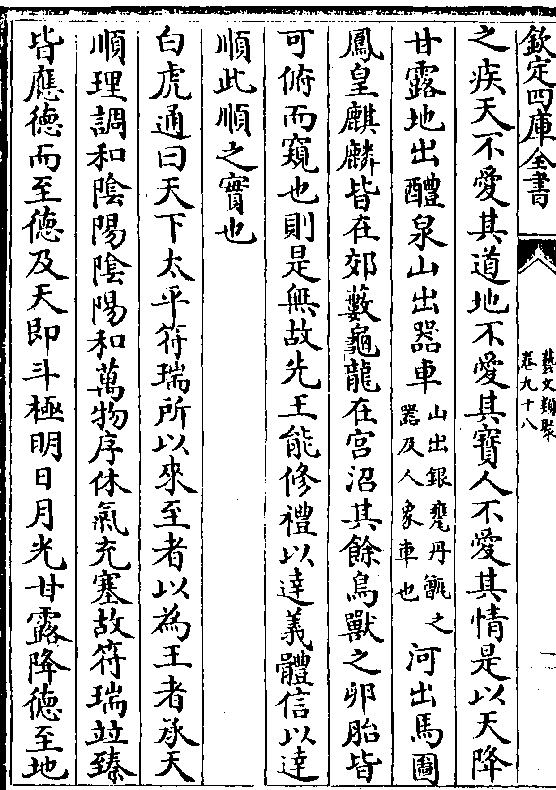 欽定四庫全書
藝文類聚
卷九十八
一
之疾天不愛其道地不愛其寶人不愛其情是以天降
甘露地出醴泉山出器車山出銀甕丹甑之器及人象車也河出馬圖
鳳皇麒麟皆在郊藪龜龍在宫沼其餘鳥獸之卵胎皆
可俯而窺也則是無故先王能修禮以達義體信以達
順此順之實也
白虎通曰天下太平符瑞所以來至者以為王者承天
順理調和陰陽陰陽和萬物序休氣充塞故符瑞竝臻
皆應德而至德及天即斗極明日月光甘露降德至地